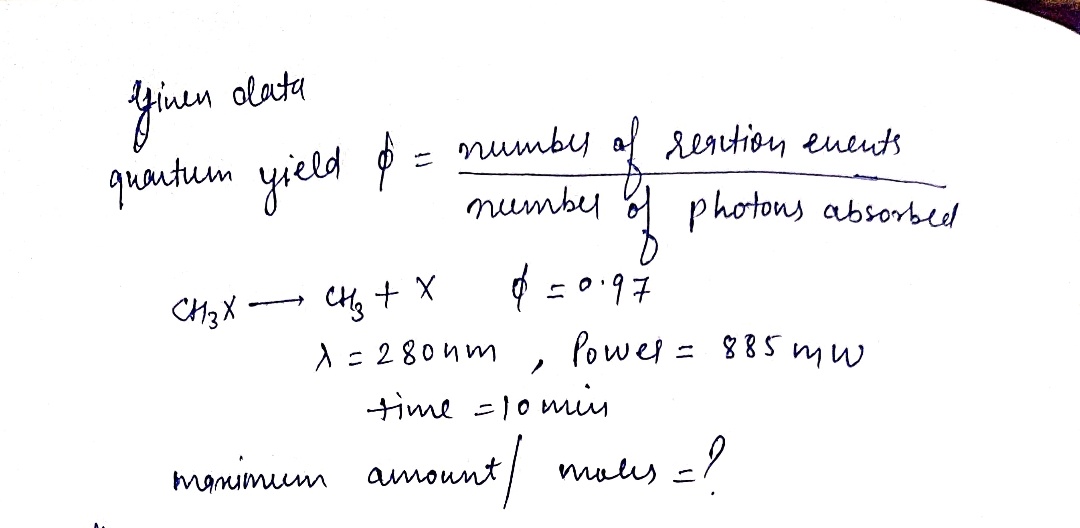 Given data
quantum yield ϕ = number of reaction events
number of photons absorbed
CH₃X ⟶ CH₃ + X ϕ = 0.97
λ = 280nm , Power = 885 mW
time = 10 min
maximum amount / moles = ?